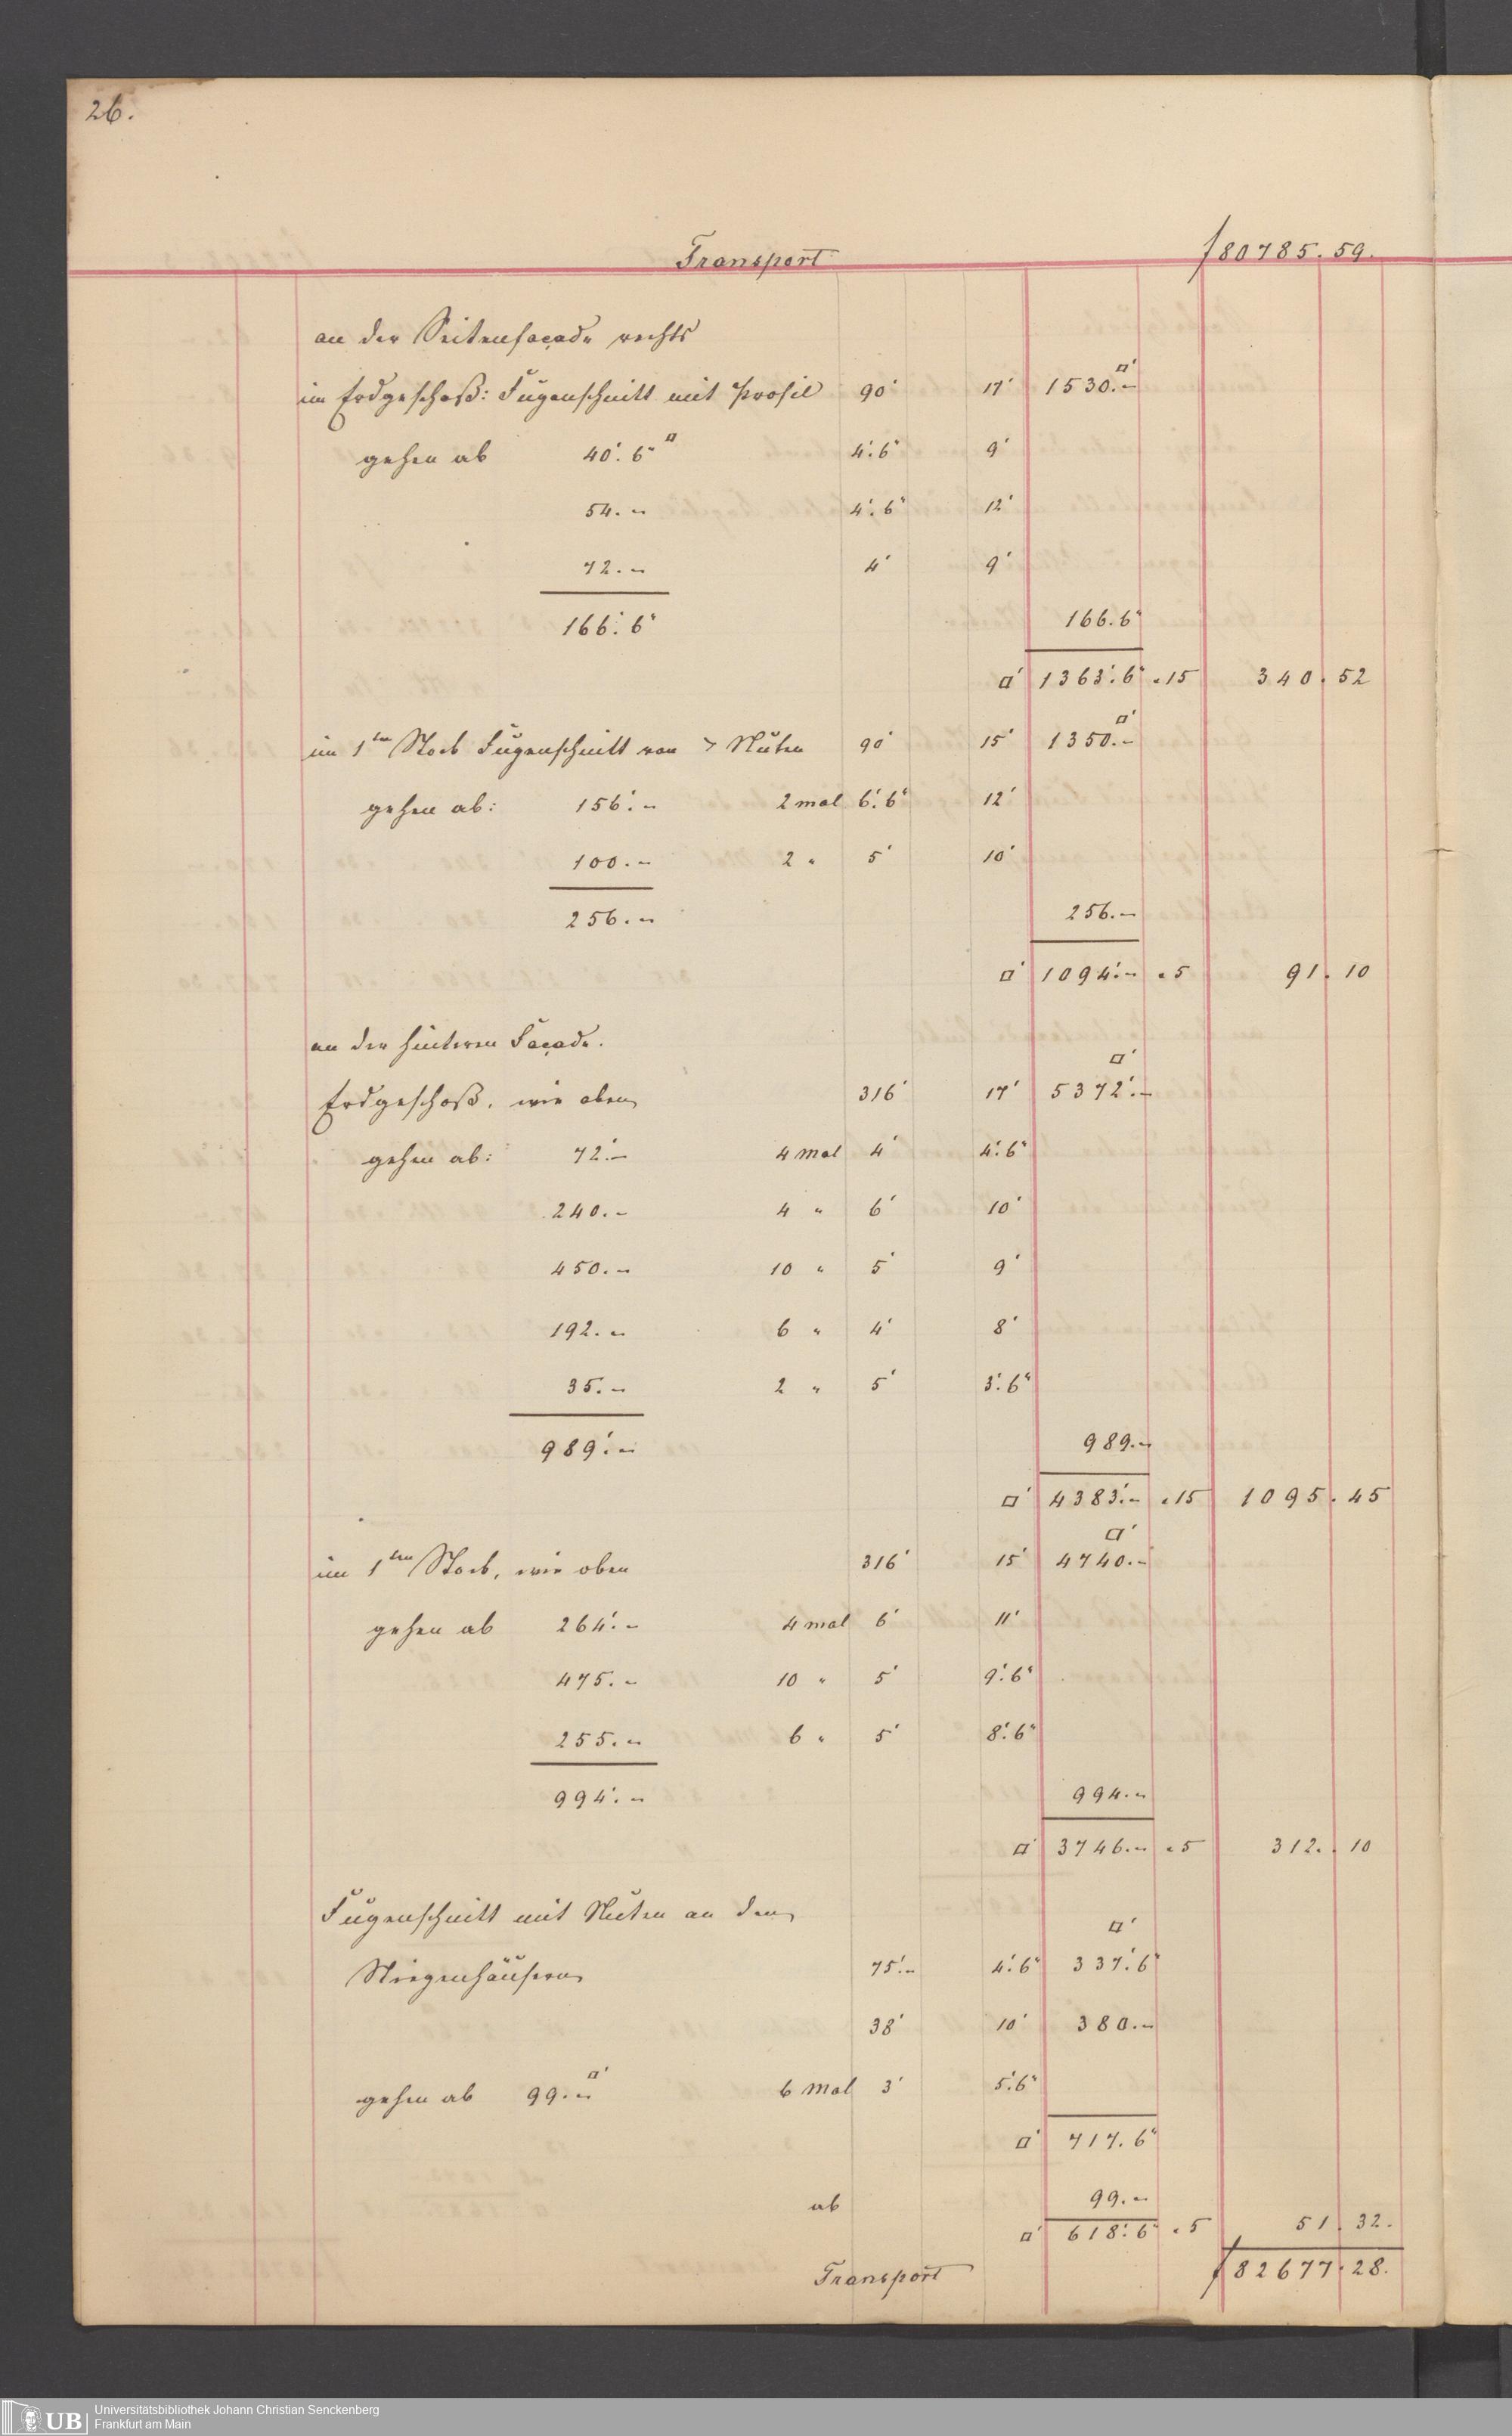 26.
Transport f 80785. 59.
an der Seitenfaçade rechts
im Erdgeschoß: Fugenschnitt mit Profil 90' 17' 1530.– □'
gehen ab 40'. 6" □ 4'. 6" 9'
54. – 4'. 6" 12'
72. – 4' 9'
166'. 6" 166. 6"
□' 1363'. 6" " 15 340. 52
im 1ten Stock Fugenschnitt von > Nuten 90' 15' 1350.– □'
gehen ab: 156'. – 2 mal 6'. 6" 12'
100. – 2 " 5' 10'
256. – 256. –
□' 1094'. – " 5 91. 10
an der hinteren Façade.
Erdgeschoß, wie oben 316' 17' 5372'. – □'
gehen ab: 72'. – 4 mal 4' 4'. 6"
240. – 4 " 6' 10'
450. – 10 " 5' 9'
192. – 6 " 4' 8'
35. – 2 " 5' 3'. 6"
989'. – 989. –
□' 4383'. – " 15 1095. 45
im 1ten Stock, wie oben 316' 15' 4740. – □'
gehen ab 264'. – 4 mal 6' 11'
475. – 10 " 5' 9'. 6"
255. – 6 " 5' 8'. 6"
994'. – 994. –
□' 3746. – " 5 312. 10
Fugenschnitt mit Nuten an den
Stiegenhäusern 75'. – 4'. 6" 337'. 6" □'
38' 10' 380. –
gehen ab 99. – □' 6 Mal 3' 5'. 6"
□' 717. 6"
ab 99. –
□' 618'. 6" " 5 51. 32.
Transport f 82677. 28.
UB Universitätsbibliothek Johann Christian Senckenberg
Frankfurt am Main